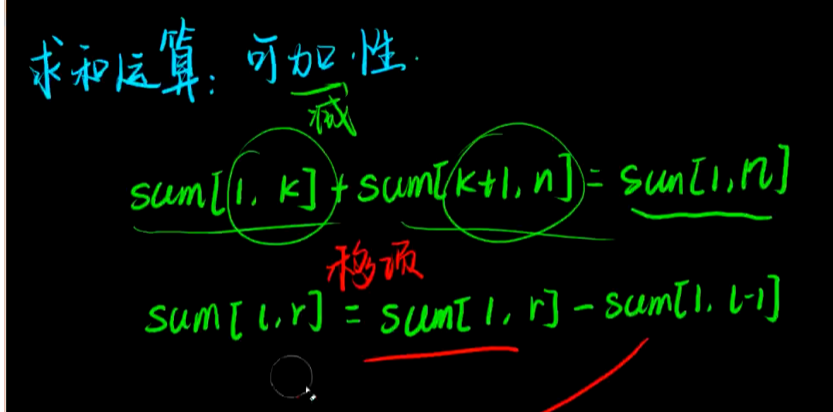 求和运算: 可加性.
减
sum[1, k] + sum[k+1, n] = sum[1, n]
移项
sum[l, r] = sum[1, r] - sum[1, l-1]